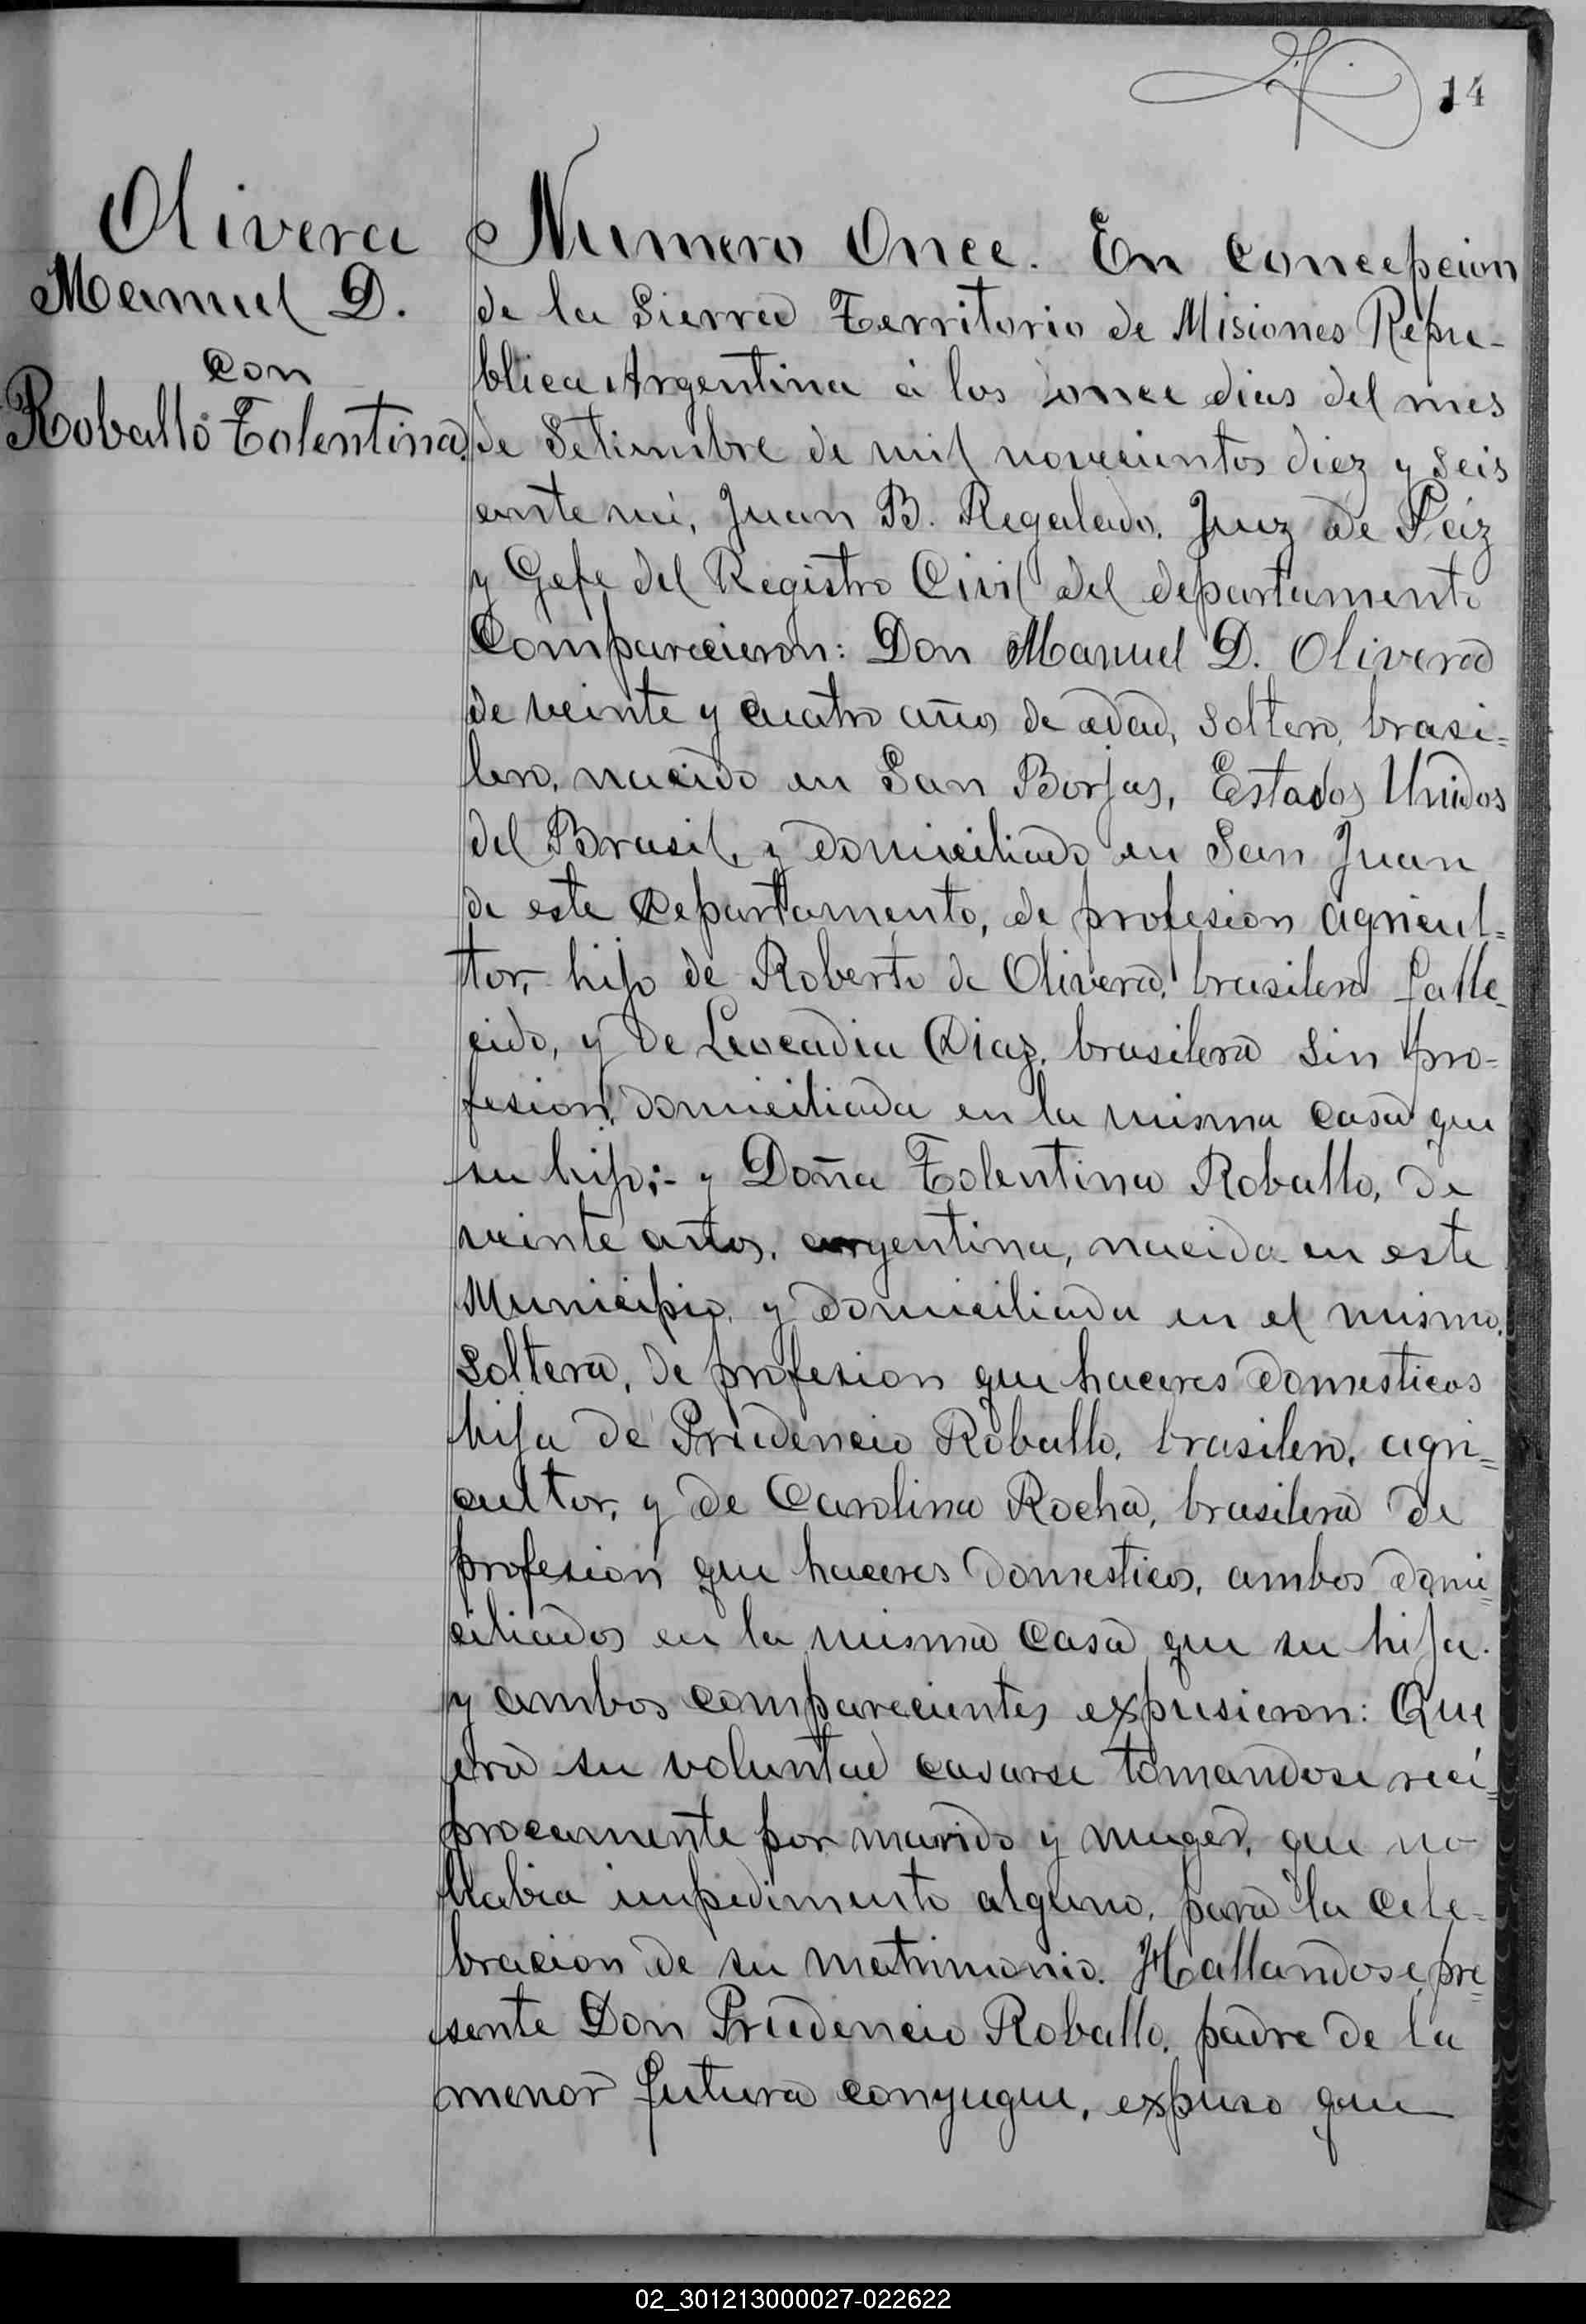 14
Olivera
Manuel D.
con
Roballo Tolentina.
Numero Once. En Concepcion
de la Sierra Territorio de Misiones Repu-
blica Argentina á los once dias del mes
de Setiembre de mil novecientos diez y seis
ante mi, Juan B. Regalado, Juez de Paz
y Gefe del Registro Civil del departamento
Comparecieron: Don Manuel D. Olivera
de veinte y cuatro años de edad, soltero, brasi=
lero, nacido en San Borjas, Estados Unidos
del Brasil, y domiciliado en San Juan
de este Departamento, de profesion agricul=
tor, hijo de Roberto de Olivera, brasilero falle-
cido, y de Leocadia Diaz, brasilera sin pro-
fesion, domiciliada en la misma casa que
su hijo;- y Doña Tolentina Roballo, de
veinte años, argentina, nacida en este
Municipio, y domiciliada en el mismo,
Soltera, de profesion que haceres domesticos
hija de Prudencio Roballo, brasilero, agri=
cultor, y de Carolina Rocha, brasilera de
profesion que haceres domesticos, ambos domi=
ciliados en la misma casa que su hija.
y ambos comparecientes expusieron: Que
era su voluntad casarse tomandose reci=
procamente por marido y muger, que no
habia impedimento alguno, para la cele-
bracion de su matrimonio. Hallandose pre=
sente Don Prudencio Roballo, padre de la
menor futura conyugue, expuso que
02_301213000027-022622